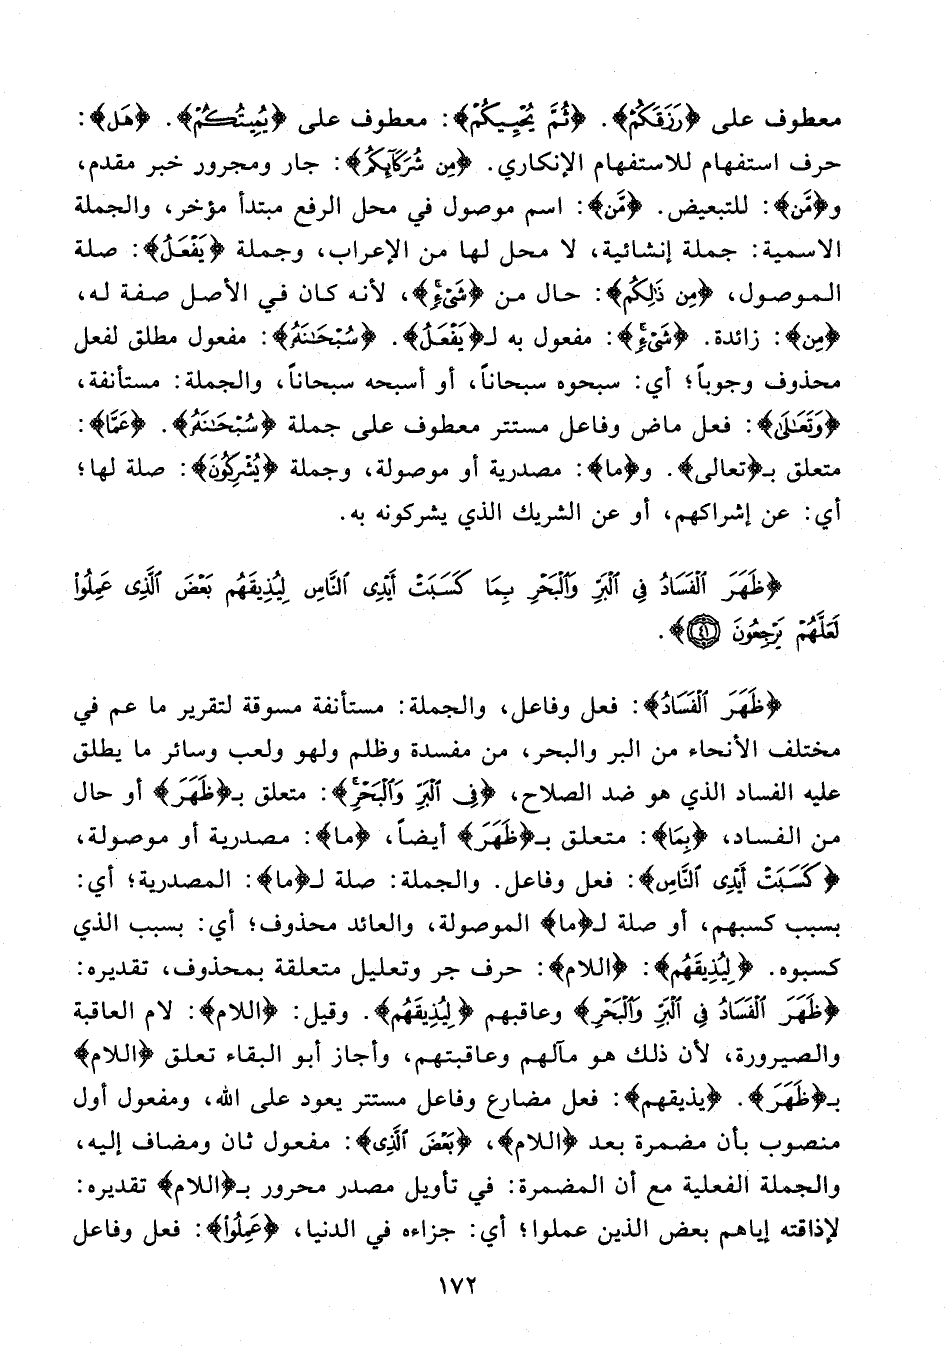 معطوف على ﴿رَزَقَكُمْ﴾. ﴿ثُمَّ يُحْيِيكُمْ﴾: معطوف على ﴿يُمِيتُكُمْ﴾. ﴿هَل﴾:
حرف استفهام للاستفهام الإنكاري. ﴿مِن شُرَكَآئِكُم﴾: جار ومجرور خبر مقدم،
و﴿مَّن﴾: للتبعيض. ﴿مَّن﴾: اسم موصول في محل الرفع مبتدأ مؤخر، والجملة
الاسمية: جملة إنشائية، لا محل لها من الإعراب، وجملة ﴿يَفْعَلُ﴾: صلة
الموصول، ﴿مِن ذَٰلِكُم﴾: حال من ﴿شَىْءٍ﴾، لأنه كان في الأصل صفة له،
﴿مِن﴾: زائدة. ﴿شَىْءٍ﴾: مفعول به لـ﴿يَفْعَلُ﴾. ﴿سُبْحَٰنَهُۥ﴾: مفعول مطلق لفعل
محذوف وجوباً؛ أي: سبحوه سبحاناً، أو أسبحه سبحاناً، والجملة: مستأنفة،
﴿وَتَعَٰلَىٰ﴾: فعل ماض وفاعل مستتر معطوف على جملة ﴿سُبْحَٰنَهُۥ﴾. ﴿عَمَّا﴾:
متعلق بـ﴿تعالى﴾. و﴿ما﴾: مصدرية أو موصولة، وجملة ﴿يُشْرِكُونَ﴾: صلة لها؛
أي: عن إشراكهم، أو عن الشريك الذي يشركونه به.
﴿ظَهَرَ ٱلْفَسَادُ فِى ٱلْبَرِّ وَٱلْبَحْرِ بِمَا كَسَبَتْ أَيْدِى ٱلنَّاسِ لِيُذِيقَهُم بَعْضَ ٱلَّذِى عَمِلُوا۟
لَعَلَّهُمْ يَرْجِعُونَ ٤١﴾.
﴿ظَهَرَ ٱلْفَسَادُ﴾: فعل وفاعل، والجملة: مستأنفة مسوقة لتقرير ما عم في
مختلف الأنحاء من البر والبحر، من مفسدة وظلم ولهو ولعب وسائر ما يطلق
عليه الفساد الذي هو ضد الصلاح، ﴿فِى ٱلْبَرِّ وَٱلْبَحْرِ﴾: متعلق بـ﴿ظَهَرَ﴾ أو حال
من الفساد، ﴿بِمَا﴾: متعلق بـ﴿ظَهَرَ﴾ أيضاً، ﴿ما﴾: مصدرية أو موصولة،
﴿كَسَبَتْ أَيْدِى ٱلنَّاسِ﴾: فعل وفاعل. والجملة: صلة لـ﴿ما﴾: المصدرية؛ أي:
بسبب كسبهم، أو صلة لـ﴿ما﴾ الموصولة، والعائد محذوف؛ أي: بسبب الذي
كسبوه. ﴿لِيُذِيقَهُم﴾: ﴿اللام﴾: حرف جر وتعليل متعلقة بمحذوف، تقديره:
﴿ظَهَرَ ٱلْفَسَادُ فِى ٱلْبَرِّ وَٱلْبَحْرِ﴾ وعاقبهم ﴿لِيُذِيقَهُم﴾. وقيل: ﴿اللام﴾: لام العاقبة
والصيرورة، لأن ذلك هو مآلهم وعاقبتهم، وأجاز أبو البقاء تعلق ﴿اللام﴾
بـ﴿ظَهَرَ﴾. ﴿يذيقهم﴾: فعل مضارع وفاعل مستتر يعود على الله، ومفعول أول
منصوب بأن مضمرة بعد ﴿اللام﴾، ﴿بَعْضَ ٱلَّذِى﴾: مفعول ثان ومضاف إليه،
والجملة الفعلية مع أن المضمرة: في تأويل مصدر محرور بـ﴿اللام﴾ تقديره:
لإذاقته إياهم بعض الذين عملوا؛ أي: جزاءه في الدنيا، ﴿عَمِلُوا۟﴾: فعل وفاعل
١٧٢